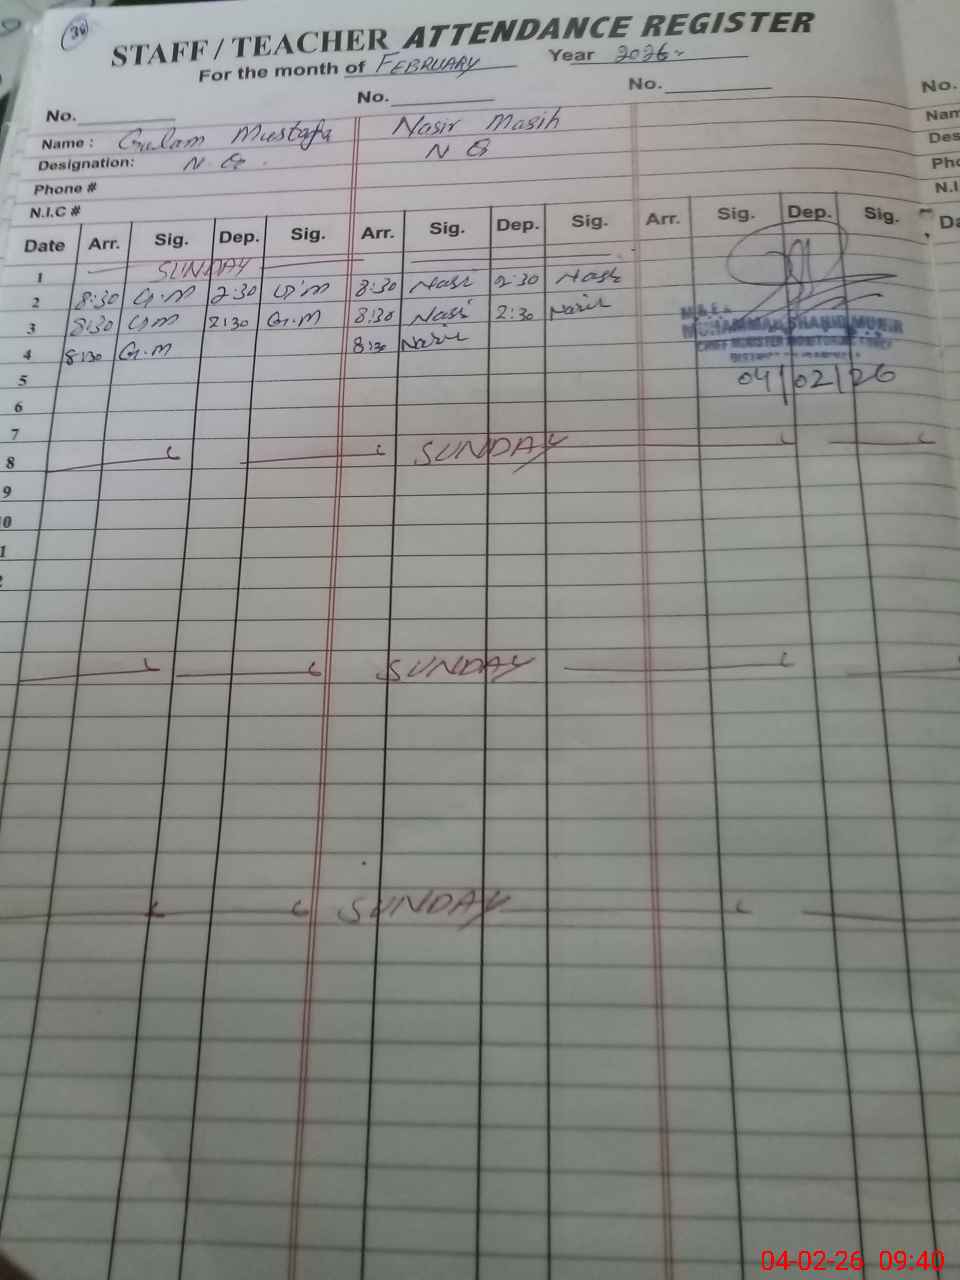 38
STAFF / TEACHER ATTENDANCE REGISTER
For the month of FEBRUARY Year 2026
No. No. No. No.
Name : Gulam Mustafa Nasir Masih Nam
Designation: N.Q. N Q Des
Phone # Pho
N.I.C # N.I
Date Arr. Sig. Dep. Sig. Arr. Sig. Dep. Sig. Arr. Sig. Dep. Sig. Da
1 SUNDAY
2 8:30 G.M 2:30 G.M 8:30 Nasir 2:30 Nasir
3 8:30 G.M 2:30 G.M 8:30 Nasir 2:30 Nasir
4 8:30 G.M 8:30 Nasir
M.& E.A
MUHAMMAD SHAHID MUNIR
CHIEF MINISTER MONITORING FORCE
04/02/26
5
6
7
8 SUNDAY
9
0
1
2
SUNDAY
SUNDAY
04-02-26 09:40